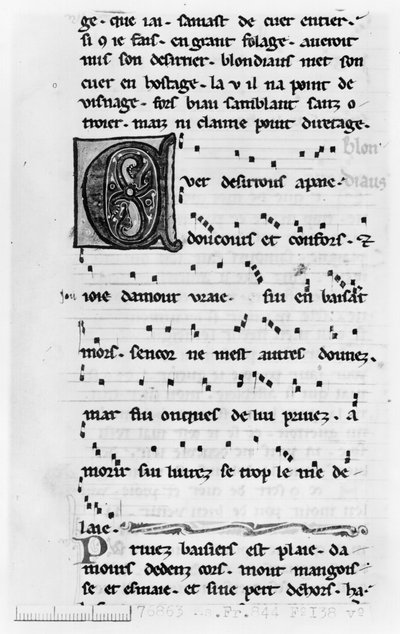 ge · que iai · samast de cuer entier ·
si 9 ie fais · en grant folage · aueroit
mis son desirrier · blondiaus met son
cuer en hostage · la v il na point de
visnage · fors biau samblant sanz o
troier · maiz ni claime point diretage ·
blon
diaus
Cuer desirrous apaie ·
doucours et confors · &
Jou
ioie damour vraie · sui en baisāt
mors · sencor ne mest autres donnez ·
mar sui onques de lui priuez · a
morir sui liurez se trop le me de
laie ·
Priuez baisiers est plaie · da
mours dedenz cors · mout mangois
se et esmaie · et si ne pert dehors · ha
76863 Fr. 844 F° 138 v°